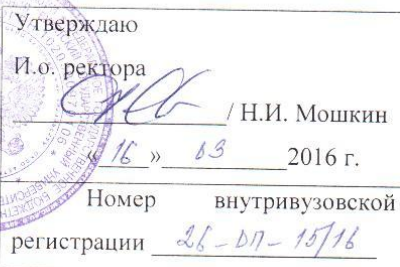 Утверждаю
И.о. ректора
/ Н.И. Мошкин
«16» 03 2016 г.
Номер внутривузовской
регистрации 26-ОП-15/16